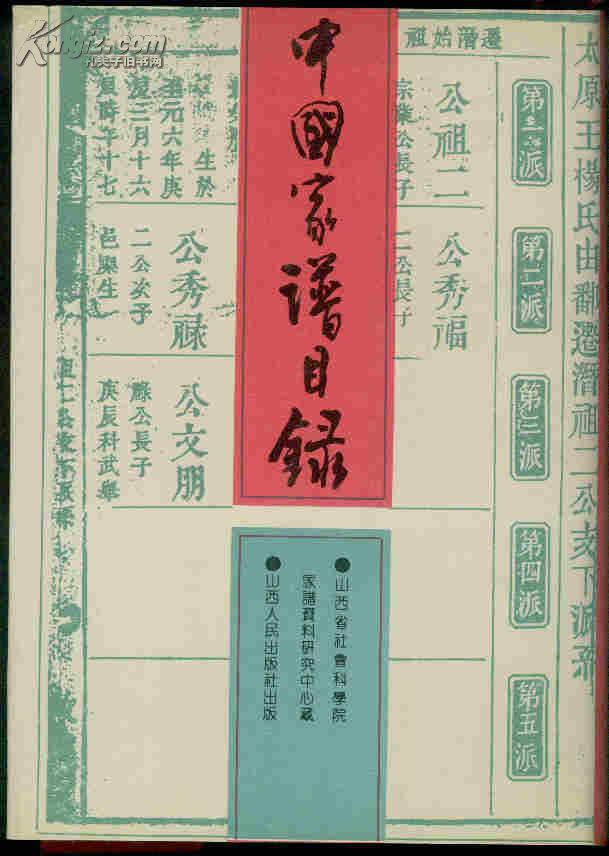 中國家譜目錄
●山西省社會科學院
家譜資料研究中心藏
●山西人民出版社出版
太原王楊氏由鄱遷潛祖二公支下派系
第一派
第二派
第三派
第四派
第五派
遷潛始祖
公祖二
宗業公長子
公秀福
二公長子
生於
至元六年庚
三月十六
時年十七
公秀祿
二公次子
邑庠生
公文朋
祿公長子
庚辰科武舉
Kongfz.com
孔夫子旧书网